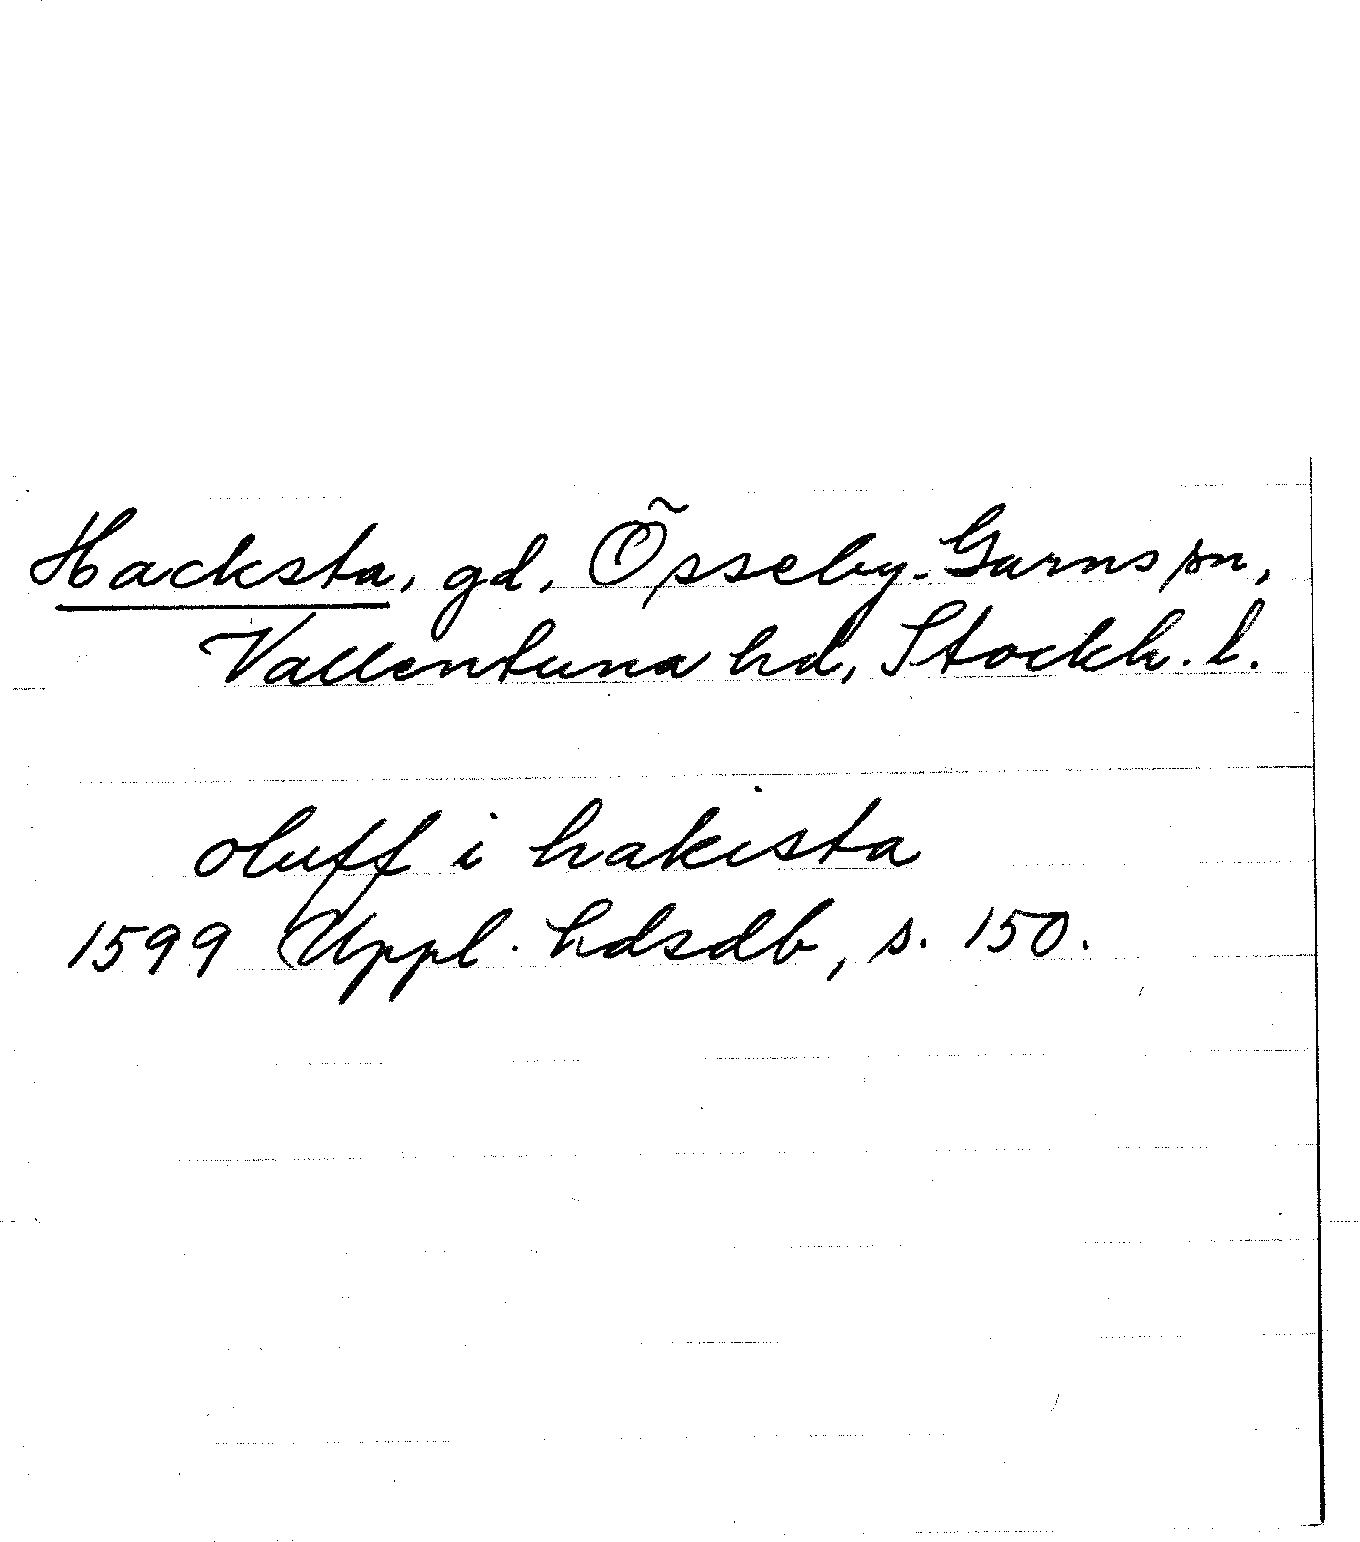 Hacksta, gd, Össeby-Garns sn,
Vallentuna hd, Stockh. l.
oluff i hakista
1599 Uppl. hdsdb, s. 150.